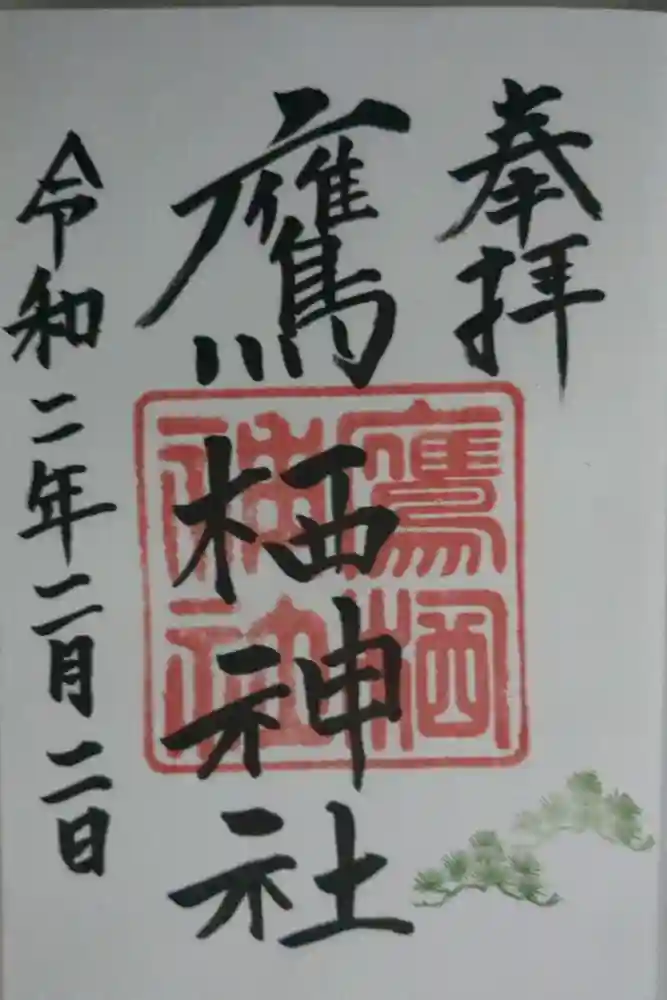 奉拝
鷹栖神社
鷹栖
神社
令和二年二月二日